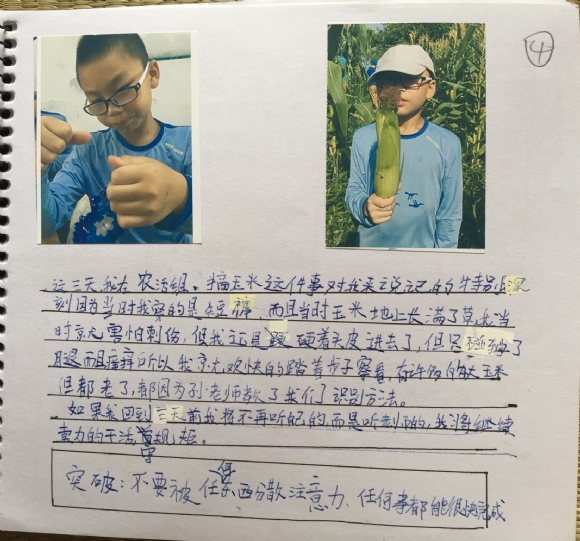 ④
这三天我在农活组，掰玉米这件事对我来说记的特别深
刻因为当时我穿的是短裤，而且当时玉米地上长满了草我当
时就害怕刺伤，但我还是硬着头皮进去了，但只
腿而且痒痒所以我就欢快的踏着步子察看，有许多的大玉米
但都老了，都因为孙老师教了我们识别方法。
如果我回到三天前我将不再听自己的，而是听老师的，我将继续
卖力的干活守规矩。
突破：不要被任何东西分散注意力、任何事都能很快完成